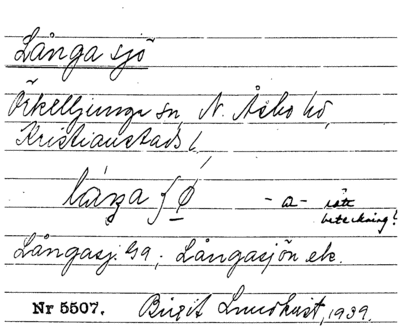 Långa sjö
Örkelljunga sn, N. Åsbo hd,
Kristianstads l.
láŋa ʃǿ̱ - a - rätt
beteckning?
Långasj. Ga ; Långasjön ek.
Nr 5507. Birgit Lundkvist, 1939.